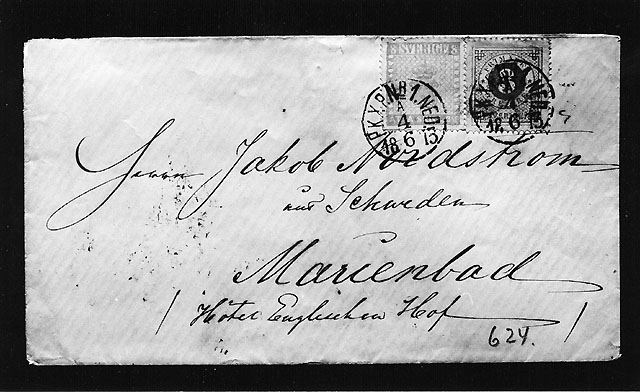 SVERIGE
PKXP. Nr 1. NED.
A
4
18 6 15
4
18 6 15
Herrn Jakob Nordstrom
aus Schweden
Marienbad
Hôtel Englischen Hof
624.